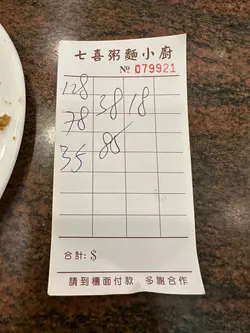 七喜粥麵小廚
No 079921
128
78 38 18
35 88
合計: $
請到櫃面付款 多謝合作